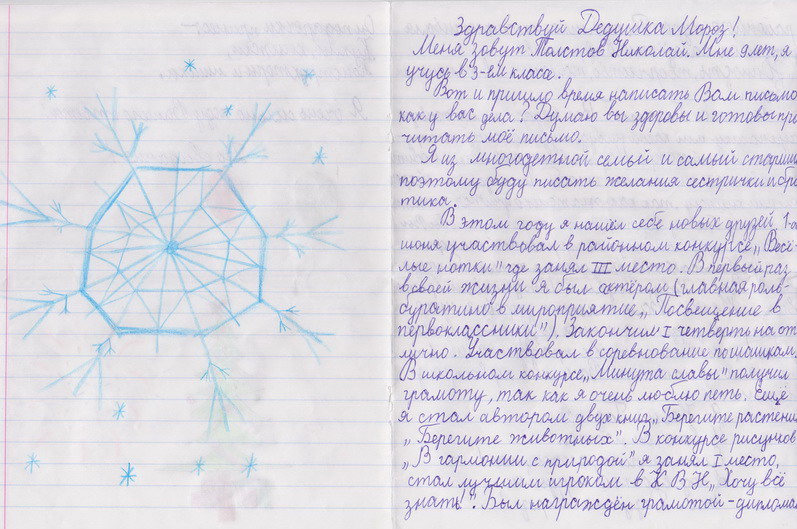 Здравствуй Дедушка Мороз!
Меня зовут Толстов Николай. Мне 9 лет, я
учусь в 3-ем класа.
Вот и пришло время написать Вам письмо
как у вас дела? Думаю вы здоровы и готовы про
читать моё письмо.
Я из многодетной семьй и самый старши
поэтому буду писать желания сестрички и бра
тика.
В этом году я нашёл себе новых друзей, 1-а
июня участвовал в районном конкурсе „Весё-
лые нотки" где занял III место. В первый раз
в своей жизни я был актёром (главная роль-
буратино в мироприятие „Посвещение в
первоклассники"). Закончил I четверть на от
лично. Участвовал в соревнование по шашкам.
В школьном конкурсе „Минута славы" получил
грамоту, так как я очень люблю петь. Ещё
я стал автором двух книг „Берегите растени
„Берегите животных". В конкурсе рисунков
„В гармонии с природой" я занял I место,
стал лучшим игроком в К В Н „Хочу всё
знать!". Был награждён грамотой-диплома